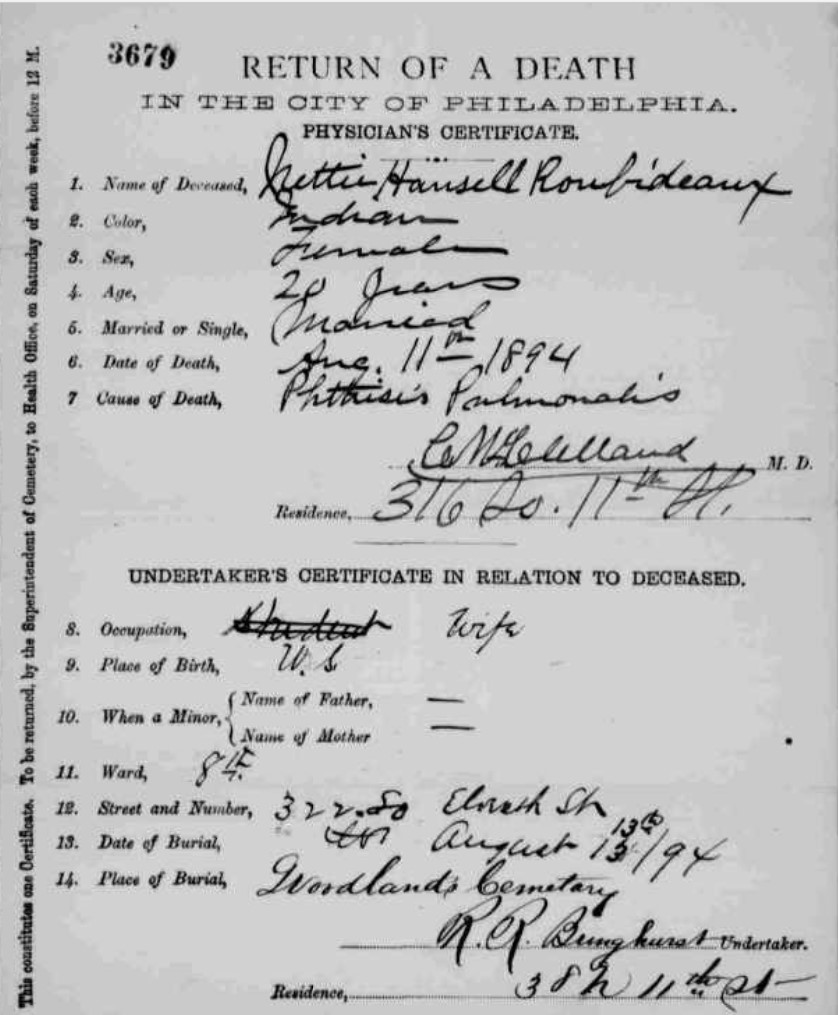 3679
RETURN OF A DEATH
IN THE CITY OF PHILADELPHIA.
PHYSICIAN'S CERTIFICATE.
1. Name of Deceased, Nettie Hansell Roubideaux
2. Color, Indian
3. Sex, Female
4. Age, 20 years
5. Married or Single, Married
6. Date of Death, Aug. 11th 1894
7 Cause of Death, Phthisis Pulmonalis
M. D.
Residence, 316 So. 11th St.
UNDERTAKER'S CERTIFICATE IN RELATION TO DECEASED.
8. Occupation, Student Wife
9. Place of Birth, U.S
10. When a Minor, { Name of Father, —
Name of Mother —
11. Ward, 8th
12. Street and Number, 322 So Eleventh St
13. Date of Burial, August 13th /94
14. Place of Burial, Woodlands Cemetary
R. R. Bringhurst Undertaker.
Residence, 38 N 11th St
This constitutes one Certificate. To be returned, by the Superintendent of Cemetery, to Health Office, on Saturday of each week, before 12 M.